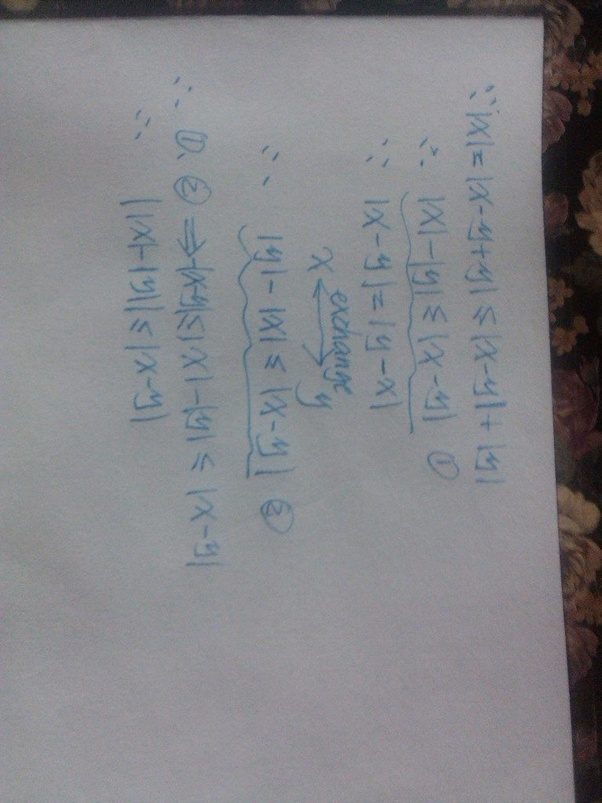 ∵ |x| = |x-y+y| ≤ |x-y| + |y|
∴ |x| - |y| ≤ |x-y| ①
∵ |x-y| = |y-x|
exchange
x ⟷ y
∴ |y| - |x| ≤ |x-y| ②
∴ ①. ② ⇒ -|x-y| ≤ |x| - |y| ≤ |x-y|
∴ ||x| - |y|| ≤ |x-y|